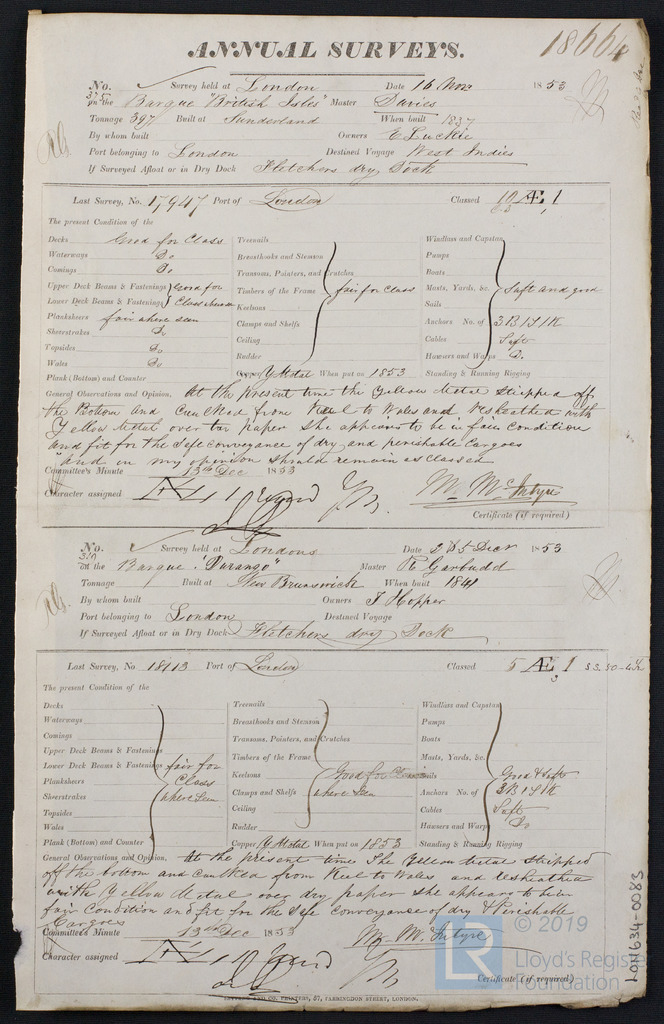 18664
ANNUAL SURVEYS.
No. 375 Survey held at London Date 16 Nov 1853
on the Barque "British Isles" Master Davies
Tonnage 397 Built at Sunderland When built 1837
By whom built Owners E Luckie
Port belonging to London Destined Voyage West Indies
If Surveyed Afloat or in Dry Dock Fletchers dry Dock
Last Survey, No. 17,947 Port of London Classed Æ 1
The present Condition of the
Decks Good for Class
Waterways Do
Comings Do
Upper Deck Beams & Fastenings Good for
Lower Deck Beams & Fastenings Class where seen
Planksheers fair where seen
Sheerstrakes Do
Topsides Do
Wales Do
Plank (Bottom) and Counter
Treenails
Breasthooks and Stemson
Transoms, Pointers, and Crutches
Timbers of the Frame fair for Class
Keelsons
Clamps and Shelfs
Ceiling
Rudder
Copper Y Metal When put on 1853
Windlass and Capstan
Pumps
Boats
Masts, Yards, &c. Safe and good
Sails
Anchors No. of 3 B 1 S 1 K
Cables Safe
Hawsers and Warps Do
Standing & Running Rigging
General Observations and Opinion, At the present time the Yellow Metal stripped off
the Bottom and Caulked from Keel to Wales and resheathed with
Yellow Metal over tar paper she appears to be in fair condition
and fit for the safe conveyance of dry and perishable Cargoes
and in my opinion should remain as classed
Committee's Minute 13th Dec 1853
Character assigned
Mr McIntyre
Certificate (if required)
No. Survey held at London Date 2 & 5 Decr 1853
on the Barque "Durango" Master R Garbudd
Tonnage Built at New Brunswick When built 1841
By whom built Owners J Hopper
Port belonging to London Destined Voyage
If Surveyed Afloat or in Dry Dock Fletchers dry Dock
Last Survey, No 18113 Port of London Classed 5 Æ 1 53.
The present Condition of the
Decks
Waterways
Comings
Upper Deck Beams & Fastenings
Lower Deck Beams & Fastenings fair for
Planksheers Class
Sheerstrakes where seen
Topsides
Wales
Plank (Bottom) and Counter
Treenails
Breasthooks and Stemson
Transoms, Pointers, and Crutches
Timbers of the Frame
Keelsons Good for Class
Clamps and Shelfs where seen
Ceiling
Rudder
Copper Y Metal When put on 1853
Windlass and Capstan
Pumps
Boats
Masts, Yards, &c.
Sails Good & Safe
Anchors No. of 3 B 1 S 1 K
Cables Safe
Hawsers and Warps Do
Standing & Running Rigging
General Observations and Opinion, At the present time The Yellow Metal stripped
off the bottom and caulked from Keel to Wales and resheathed
with Yellow Metal over dry paper she appears to be in
fair Condition and fit for the safe Conveyance of dry & Perishable
Cargoes
Committee's Minute 13th Dec 1853
Character assigned
Mr McIntyre
Certificate (if required)
AND CO. PRINTERS, 57, FARRINGDON STREET, LONDON.
LON634-0083
© 2019
LR
Lloyd's Register
Foundation